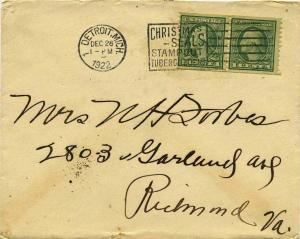 DETROIT, MICH.
DEC 26
1-PM
1922
CHRISTMAS
SEALS
STAMP OUT
TUBERCULOSIS
Mrs N H Forbes
2803 Garland ave
Richmond
Va.